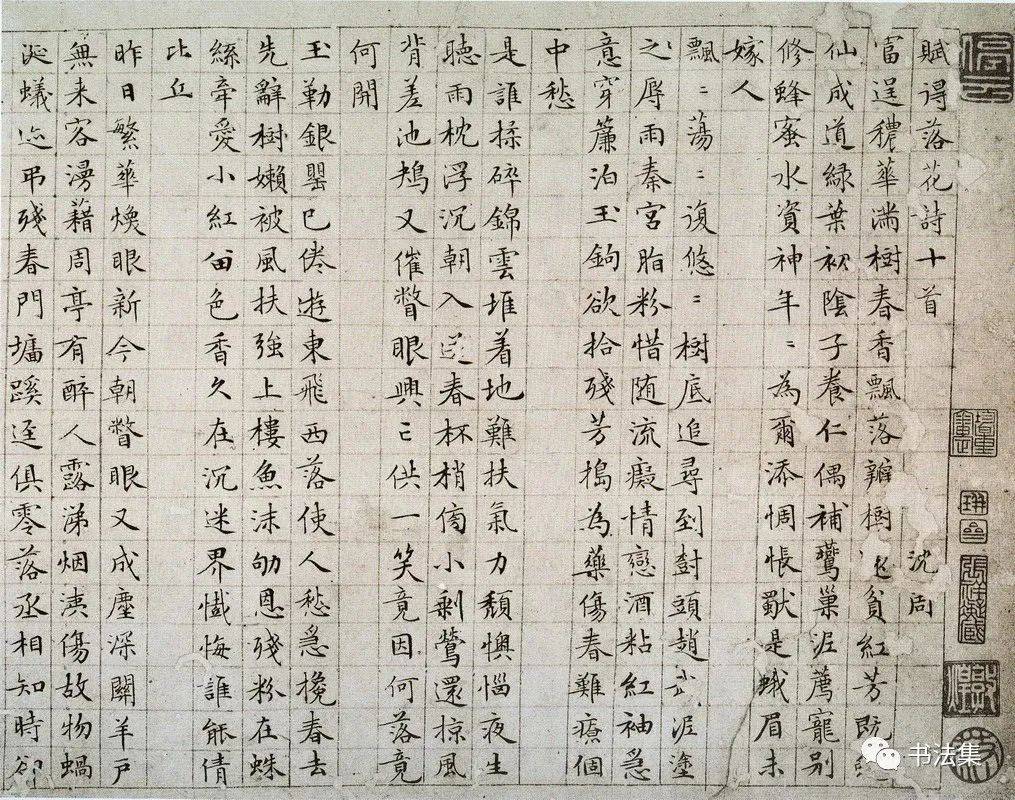 賦得落花詩十首 沈周
富逞穠華滿樹春香飄落瓣樹還貧紅芳既
仙成道綠葉初陰子養仁偶補鶯巢泥薦寵別
修蜂蜜水資神年〻為爾添惆悵是蛾眉未
嫁人
飄〻蕩〻復悠〻樹底追尋到樹頭趙武泥塗
之辱雨秦宮脂粉惜随流癡情戀酒粘紅袖急
意穿簾泊玉鉤欲拾殘芳搗為藥傷春難療個
中愁
是誰揉碎錦雲堆着地難扶氣力頹懊惱夜生
聽雨枕浮沉朝入送春杯梢傍小剩鶯還掠風
背差池鴆又催瞥眼興亡供一笑竟因何落竟
何開
玉勒銀罌已倦遊東飛西落使人愁急攙春去
先辭樹嬾被風扶強上樓魚沫劬恩殘粉在蛛
絲牽愛小紅留色香久在沉迷界懺悔誰能倩
比丘
昨日繁華煥眼新今朝瞥眼又成塵深關羊戶
無来客漫藉周亭有醉人露涕烟洟傷故物蝸
涎蟻迹弔殘春門墻蹊逕俱零落丞相知時卻
书法集